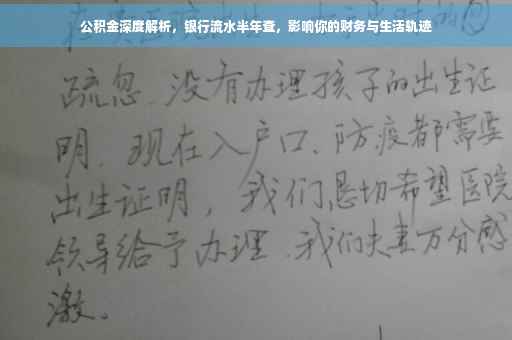 公积金深度解析，银行流水半年查，影响你的财务与生活轨迹
疏忽、没有办理孩子的出生证
明．现在入户口、防疫都需要
出生证明，我们恳切希望医院
领导给予办理．我们夫妻万分感
激。